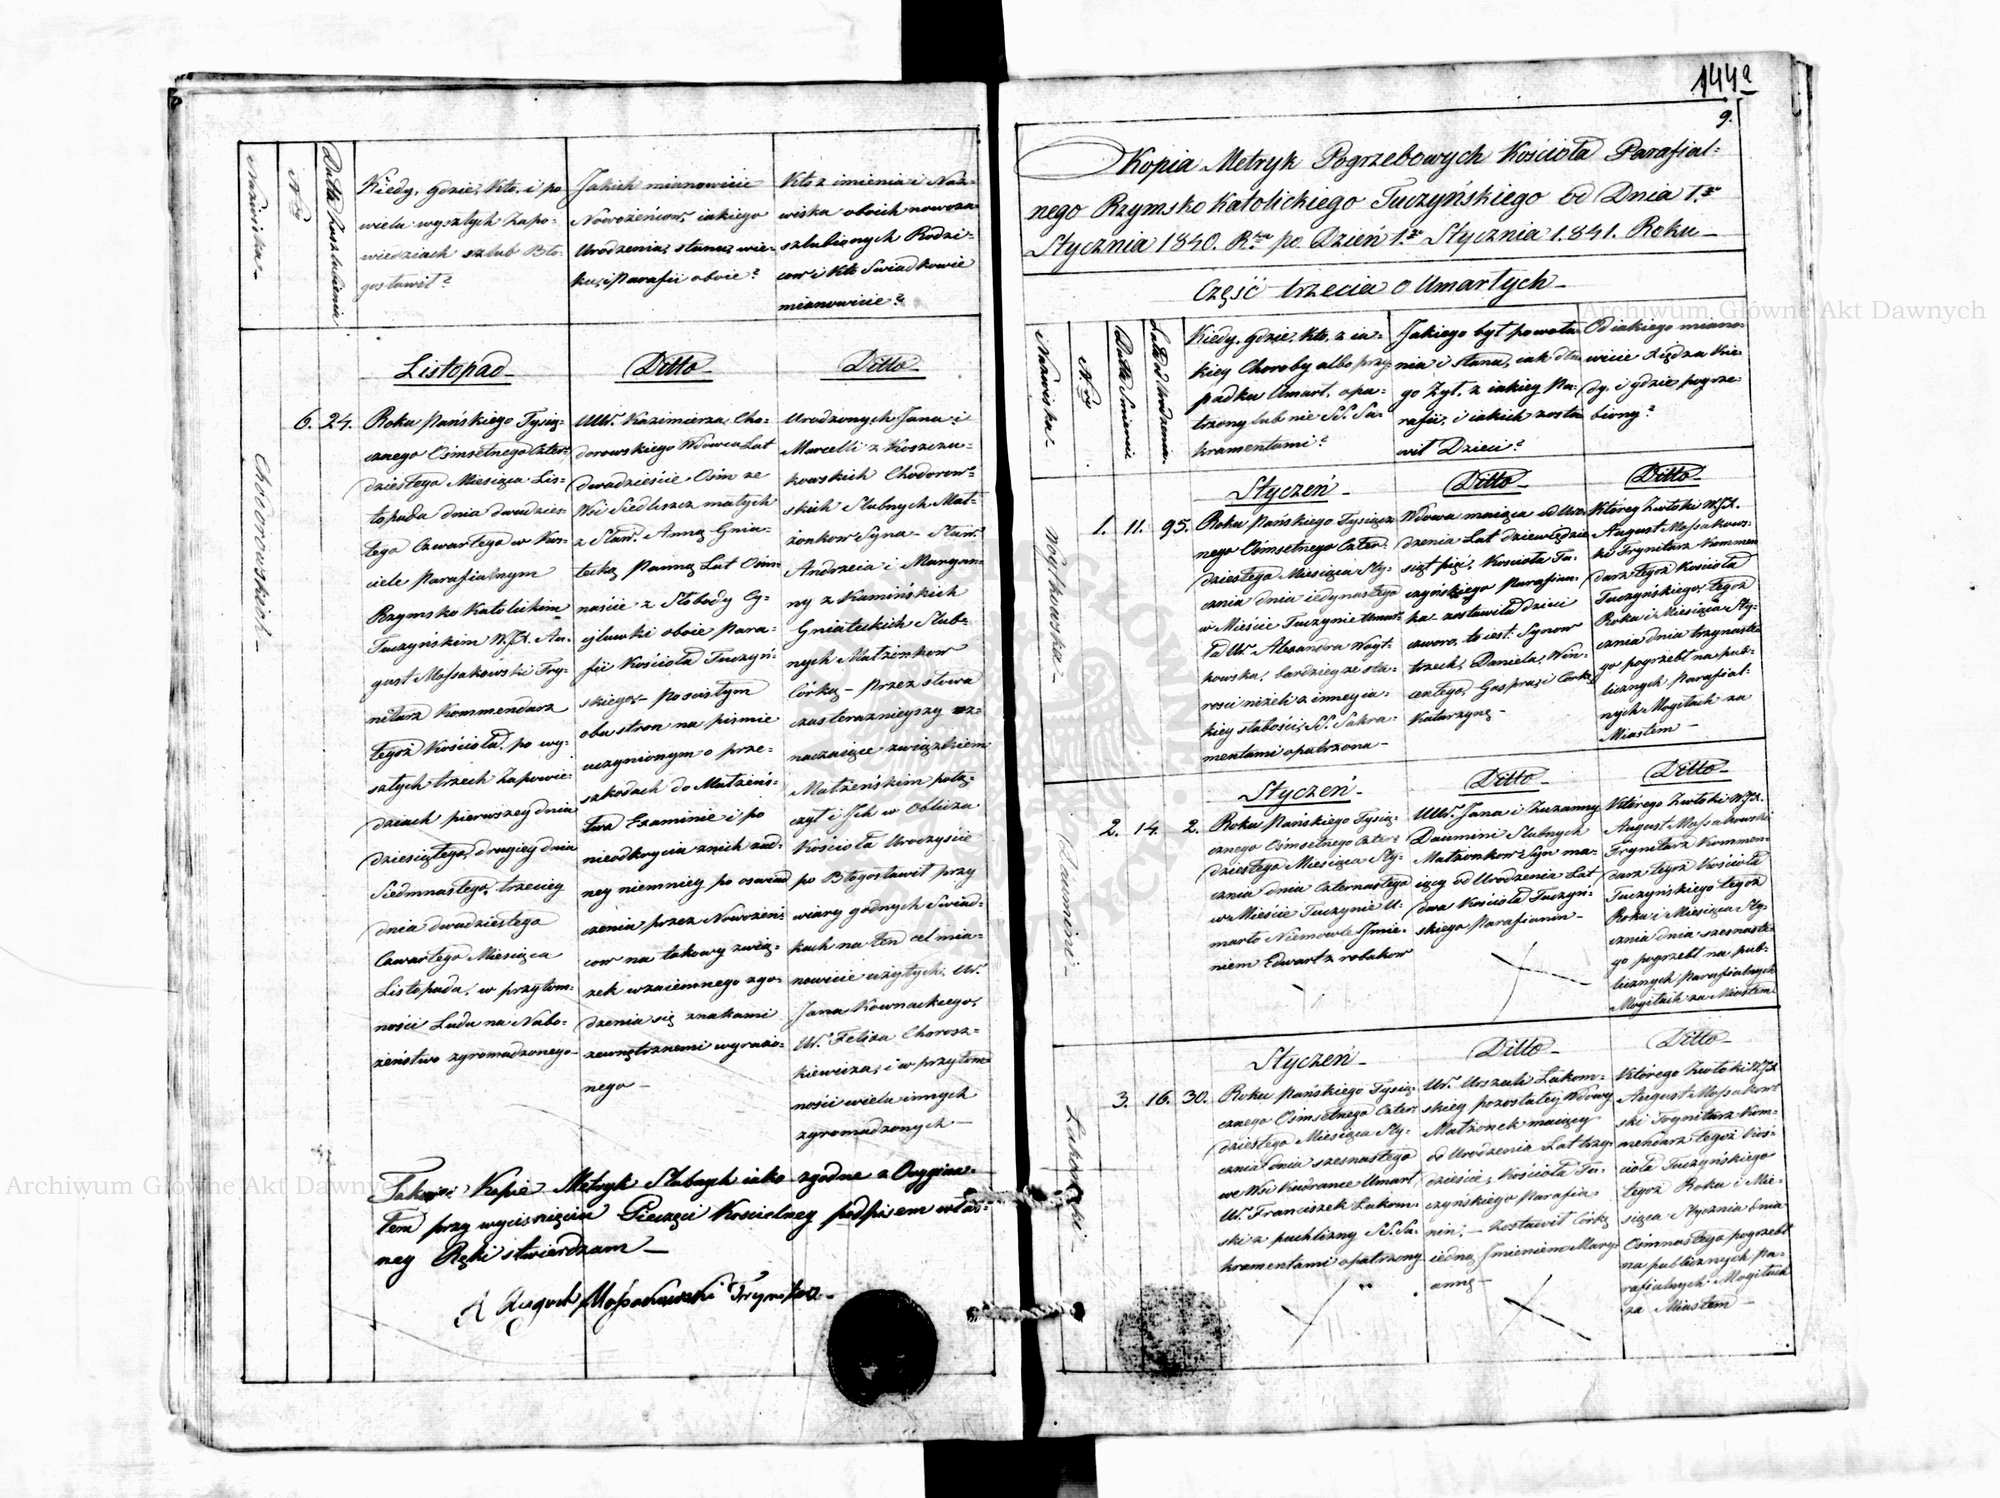 Nazwiska
Nro
Data Zaszlubienia
Kiedy, gdzie, Kto, i po
wielu wyszłych Zapo-
wiedziach szlub Bło-
gosławił?
Jakich mianowicie
Nowożeńcow, iakiego
Urodzenia, stanu, wie-
ku, i Parafii oboie?
Kto z imienia i Naz-
wiska oboich nowoza
szlubionych Rodzi-
cow i Kto Swiadkowie
mianowicie?
Listopad
Ditto
Ditto
6. 24.
Chodorowskich
Roku Pańskiego Tysią-
cznego Osmsetnego Czter-
dziestego Miesiąca Lis-
topada dnia dwudzies-
tego Czwartego w Koś-
ciele Parafialnym
Rzymsko Katolickim
Tuczyńskim W.JX. Au-
gust Mossakowski Try-
nitarz Kommendarz
tegoż Kościoła, po wy-
szłych trzech Zapowie-
dziach pierwszey dnia
dziesiątego, drugiey dnia
Siedmnastego, trzeciey
dnia dwudziestego
Czwartego Miesiąca
Listopada, w przytom-
ności Ludu na Nabo-
żeństwo zgromadzonego
UUr. Kazimierza Cho-
dorowskiego Wdowca Lat
dwadzieście Osm ze
Wsi Siedliszcz małych
z Sław. Anną Gnia-
tecką Panną Lat Ośm-
naście z Słobody Cy-
cyluwki oboie Para-
fii Kościoła Tuczyń-
skiego, po scisłym
obu stron na piśmie
uczynionym o prze-
szkodach do Małżeńs-
twa Examinie i po
nieodkryciu znich żad-
ney niemniey po oswiad
czeniu przez Nowożeń-
cow na takowy zwią-
zek wzaiemnego zgo-
dzenia się znakami
zewnętrznemi wyrażo-
nego
Urodzonych Jana i
Marcelli z Koszczu-
kowskich Chodorow-
skich Slubnych Mał-
żonkow Syna - Sław.
Andrzeia i Maryan-
ny z Kamińskich
Gniateckich Slub-
nych Małżonkow
Córkę - Przez słowa
czas teraznieyszy oz-
naczaiące związkiem
Małżeńskim połą-
czył i Ich w Obliczu
Kościoła Uroczyście
po Błogosławił przy
wiary godnych Swiad-
kach na ten cel mia-
nowicie użytych. Ur.
Jana Kownackiego,
Ur. Felixa Chorosz-
kiewicza, i w przytom-
ności wielu innych
zgromadzonych
Takową Kopię Metryk Slubnych iako zgodne z Orygina-
łem przy wyciśnięciu Pieczęci Kościelney podpisem włas-
ney Ręki stwierdzam
X August Mossakowski Trynitarz
144a
9.
Kopia Metryk Pogrzebowych Kościoła Parafial-
nego Rzymsko Katolickiego Tuczyńskiego od Dnia 1go
Stycznia 1840. Rku po Dzień 1go Stycznia 1841. Roku
Część trzecia o Umarłych
Nazwiska
Nro
Data Śmierci
Lata od Urodzenia
Kiedy, gdzie, Kto, z ia-
kiey Choroby albo przy-
padku Umarł, opa-
trzony lub nie SS. Sa-
kramentami?
Jakiego był powoła-
nia i stanu, iak dłu
go Żył, z iakiey Pa-
rafii, i iakich zosta
wił Dzieci?
Od iakiego miano-
wicie Xiędza Kie-
dy, i gdzie pogrze-
biony?
Styczeń
Ditto
Ditto
1. 11. 95.
Woytkowska
Roku Pańskiego Tysiącz
nego Osmsetnego Czter-
dziestego Miesiąca Sty-
cznia dnia iedynastego
w Mieście Tuczynie Umar-
ła Ur. Alexandra Woyt-
kowska, bardziey ze sta-
rości niżeli z inney ia-
kiey słabości, SS. Sakra-
mentami opatrzona
Wdowa maiąca od Uro-
dzenia Lat dziewiędzie
siąt pięć, Kościoła Tu-
czyńskiego Parafian-
ka zostawiła dzieci
czworo, to iest: Synow
trzech, Daniela, Win-
centego, Gaspra, i Córkę
Katarzynę
Którey Zwłoki W.JX.
August Mossakows-
ki Trynitarz Kommen
darz tegoż Kościoła
Tuczyńskiego, tegoż
Roku i Miesiąca Sty-
cznia dnia trzynaste-
go pogrzebł na pub-
licznych Parafial-
nych Mogiłach za
Miastem
Styczeń
Ditto
Ditto
2. 14. 2.
Daumini
Roku Pańskiego Tysią-
cznego Osmsetnego Czter-
dziestego Miesiąca Sty-
cznia dnia Czternastego
w Mieście Tuczynie U-
marło Niemowle Imie-
niem Edward z robakow
UUr. Jana i Zuzanny
Daumini Slubnych
Małżonkow Syn ma-
iący od Urodzenia Lat
dwa Kościoła Tuczyń-
skiego Parafianin
Którego Zwłoki W.JX.
August Mossakowski
Trynitarz Kommen-
darz tegoż Kościoła
Tuczyńskiego tegoż
Roku i Miesiąca Sty-
cznia dnia szesnaste-
go pogrzebł na pub-
licznych Parafialnych
Mogiłach za Miastem
Styczeń
Ditto
Ditto
3. 16. 30.
Łukomski
Roku Pańskiego Tysią-
cznego Osmsetnego Czter-
dziestego Miesiąca Sty-
cznia dnia szesnastego
we Wsi Kudrance Umarł
Ur. Franciszek Łukom-
ski z puchlizny SS. Sa-
kramentami opatrzony
Ur. Urszuli Łukom-
skiey pozostałey Wdowy
Małżonek maiący
od Urodzenia Lat trzy-
dzieście, Kościoła Tu-
czyńskiego Parafia-
nin. - Zostawił Córkę
iedną, Imieniem Mary-
annę
Którego Zwłoki W.JX
August Mossakow-
ski Trynitarz Kom-
mendarz tegoż Koś-
cioła Tuczyńskiego
tegoż Roku i Mie-
siąca Stycznia dnia
Osmnastego pogrzebł
na publicznych Pa-
rafialnych Mogiłach
za Miastem
Archiwum Główne Akt Dawnych
Archiwum Główne Akt Dawnych